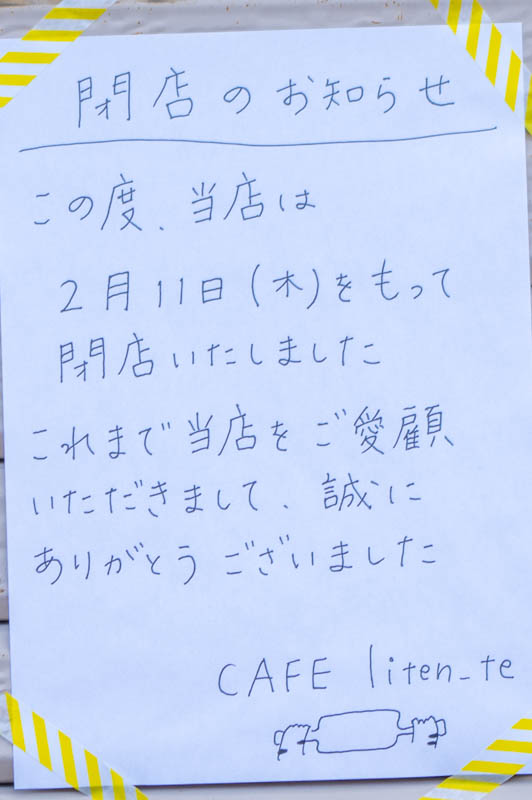 閉店のお知らせ
この度、当店は
2月11日(木)をもって
閉店いたしました
これまで当店をご愛顧
いただきまして、誠に
ありがとうございました
CAFE liten_te